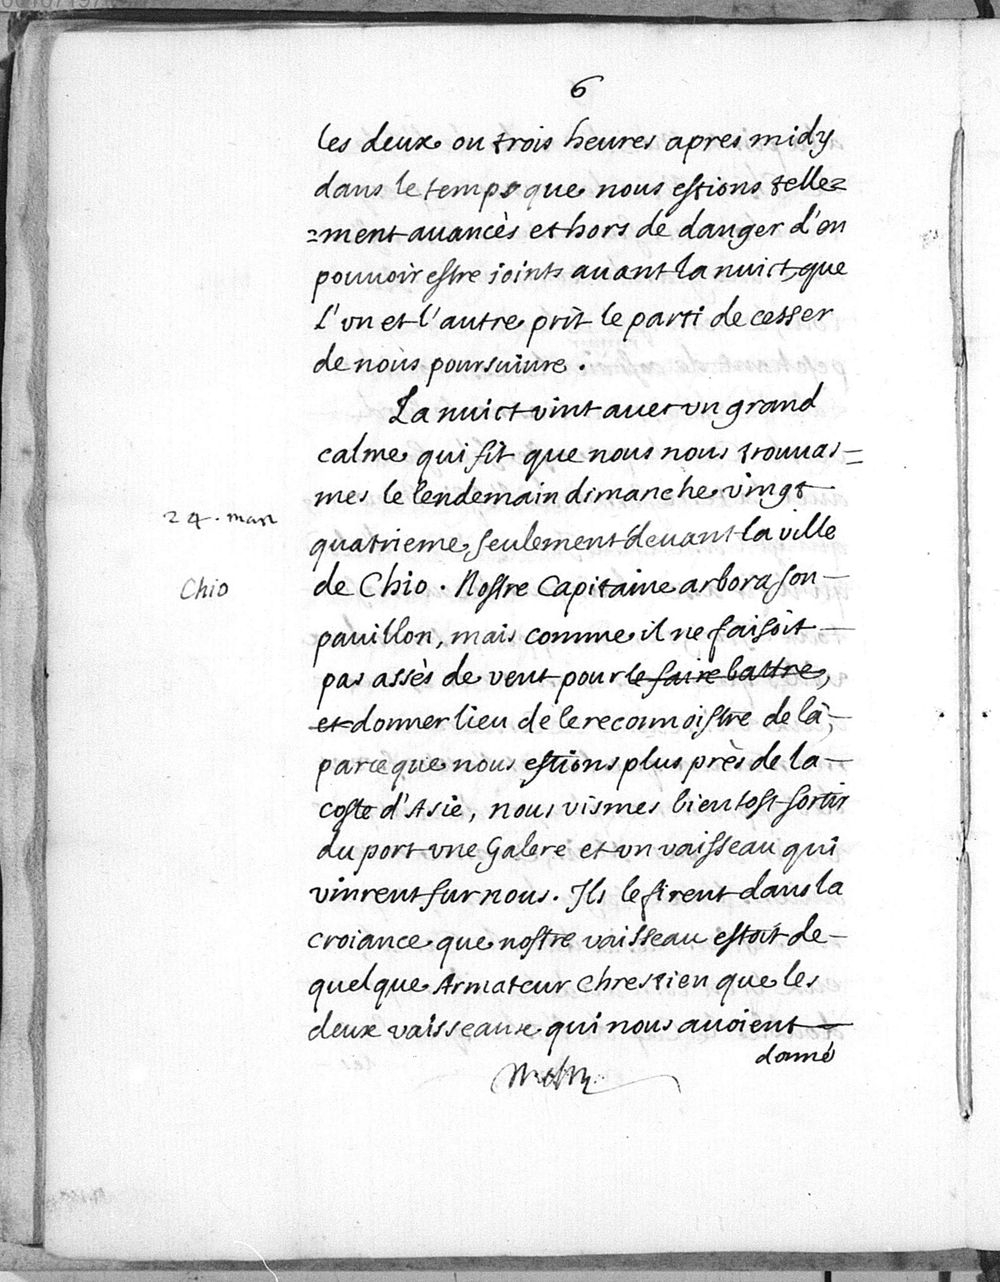 6
les deux ou trois heures apres midy
dans le temps que nous estions telle=
=ment auancès et hors de danger d'en
pouuoir estre joints auant la nuict, que
l'vn et l'autre prit le parti de cesser
de nous poursuiure.
La nuict vint auec vn grand
calme qui fit que nous nous trouuas=
mes le lendemain dimanche vingt
24. mars
quatrieme seulement deuant la ville
Chio
de Chio. Nostre Capitaine arbora son
pauillon, mais comme il ne faisoit
pas assès de vent pour le faire battre,
et donner lieu de le reconnoistre de là,
parce que nous estions plus près de la
coste d'Asie, nous vismes bientost sortir
du port vne Galere et vn vaisseau qui
vinrent sur nous. Ils le firent dans la
croiance que nostre vaisseau estoit de
quelque Armateur Chrestien que les
deux vaisseaux qui nous auoient
donné